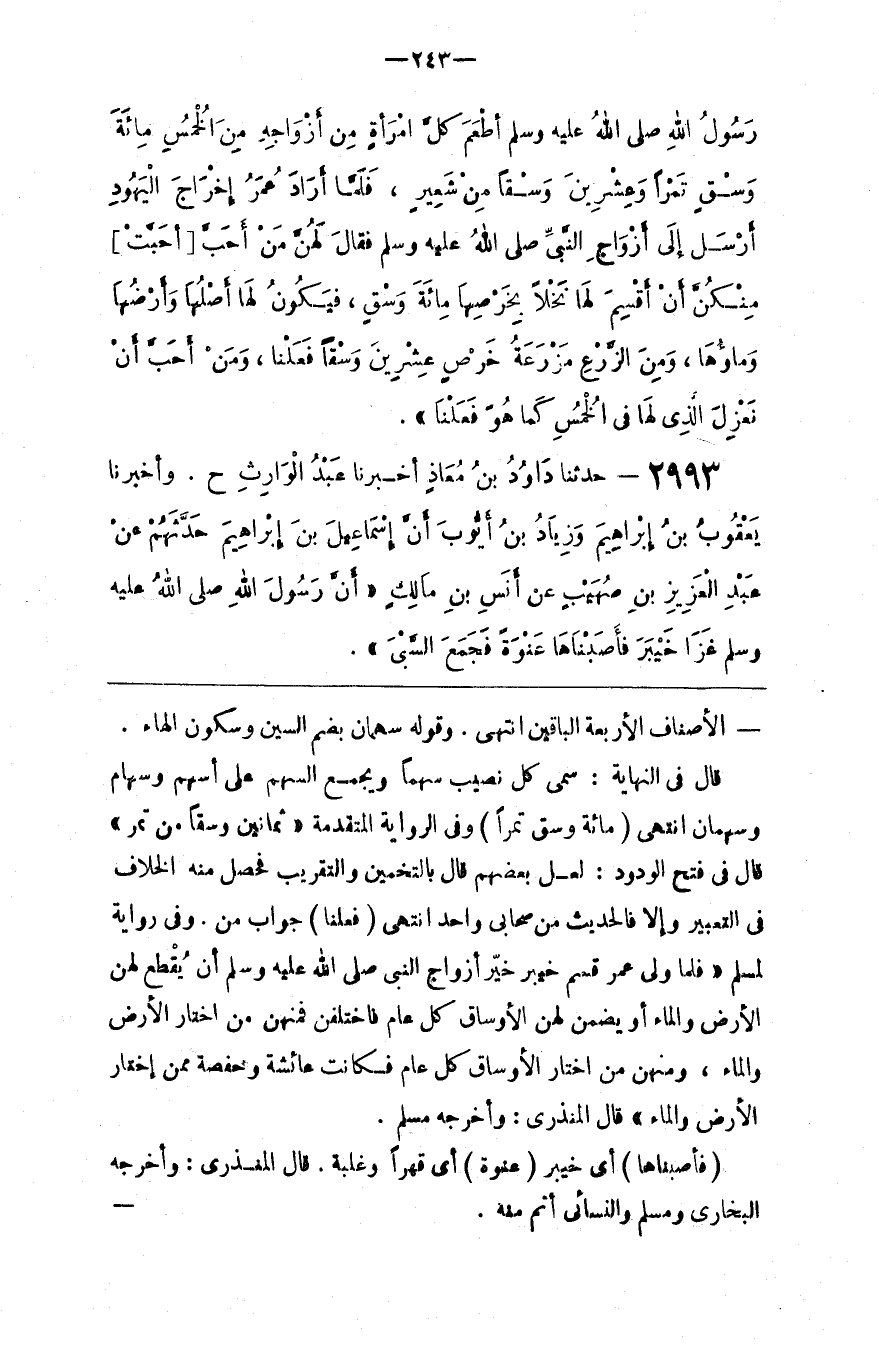 —٢٤٣—
رَسُولُ اللهِ صلى اللهُ عليه وسلم أطْعَمَ كلَّ امْرَأةٍ مِن أزْوَاجِهِ مِنَ الْخُمْسِ مِائَةَ
وَسْقٍ تَمْراً وَعِشْرِينَ وَسْقاً مِنْ شَعِيرٍ ، فَلَمَّا أرَادَ عُمَرُ إخْرَاجَ الْيَهُودِ
أرْسَلَ إلَى أزْوَاجِ النَّبىِّ صلى اللهُ عليه وسلم فقالَ لَهُنَّ مَنْ أحَبَّ [ أحَبَّتْ ]
مِنْكُنَّ أنْ أقْسِمَ لَهَا نَخْلاً بِخَرْصِهَا مِائَةَ وَسْقٍ ، فيَكُونُ لَهَا أصْلُهَا وَأرْضُهَا
وَماؤُهَا ، وَمِنَ الزَّرْعِ مَزْرَعَةُ خَرْصٍ عِشْرِينَ وَسْقاً فَعَلْنا ، وَمَنْ أحَبَّ أنْ
نَعْزِلَ الَّذِى لَهَا فى الْخُمْسِ كَما هُوَ فَعَلْنَا » .
٢٩٩٣ — حدثنا دَاوُدُ بنُ مُعَاذٍ أخبرنا عَبْدُ الْوَارِثِ ح . وأخبرنا
يَعْقُوبُ بنُ إبْرَاهِيمَ وَزِيَادُ بنُ أيُّوبَ أنَّ إسْمَاعِيلَ بنَ إبْرَاهِيمَ حَدَّثَهُمْ عنْ
عبْدِ الْعَزِيزِ بنِ صُهَيْبٍ عن أنَسِ بنِ مَالِكٍ « أنَّ رَسُولَ اللهِ صلى اللهُ عليه
وسلم غَزَا خَيْبَرَ فأصَبْنَاهَا عَنْوَةً فَجَمَعَ السَّبْىَ » .
— الأصناف الأربعة الباقين انتهى . وقوله سهمان بضم السين وسكون الهاء .
قال فى النهاية : سمى كل نصيب سهماً ويجمع السهم على أسهم وسهام
وسهمان انتهى ( مائة وسق تمراً ) وفى الرواية المتقدمة « ثمانين وسقاً من تمر »
قال فى فتح الودود : لعل بعضهم قال بالتخمين والتقريب فحصل منه الخلاف
فى التعبير وإلا فالحديث من صحابى واحد انتهى ( فعلنا ) جواب من . وفى رواية
لمسلم « فلما ولى عمر قسم خيبر خيّر أزواج النبى صلى الله عليه وسلم أن يُقْطع لهن
الأرض والماء أو يضمن لهن الأوساق كل عام فاختلفن فمنهن من اختار الأرض
والماء ، ومنهن من اختار الأوساق كل عام فكانت عائشة وحفصة ممن إختار
الأرض والماء » قال المنذرى : وأخرجه مسلم .
( فأصبناها ) أى خيبر ( عنوة ) أى قهراً وغلبة . قال المنذرى : وأخرجه
البخارى ومسلم والنسائى أتم منه . —